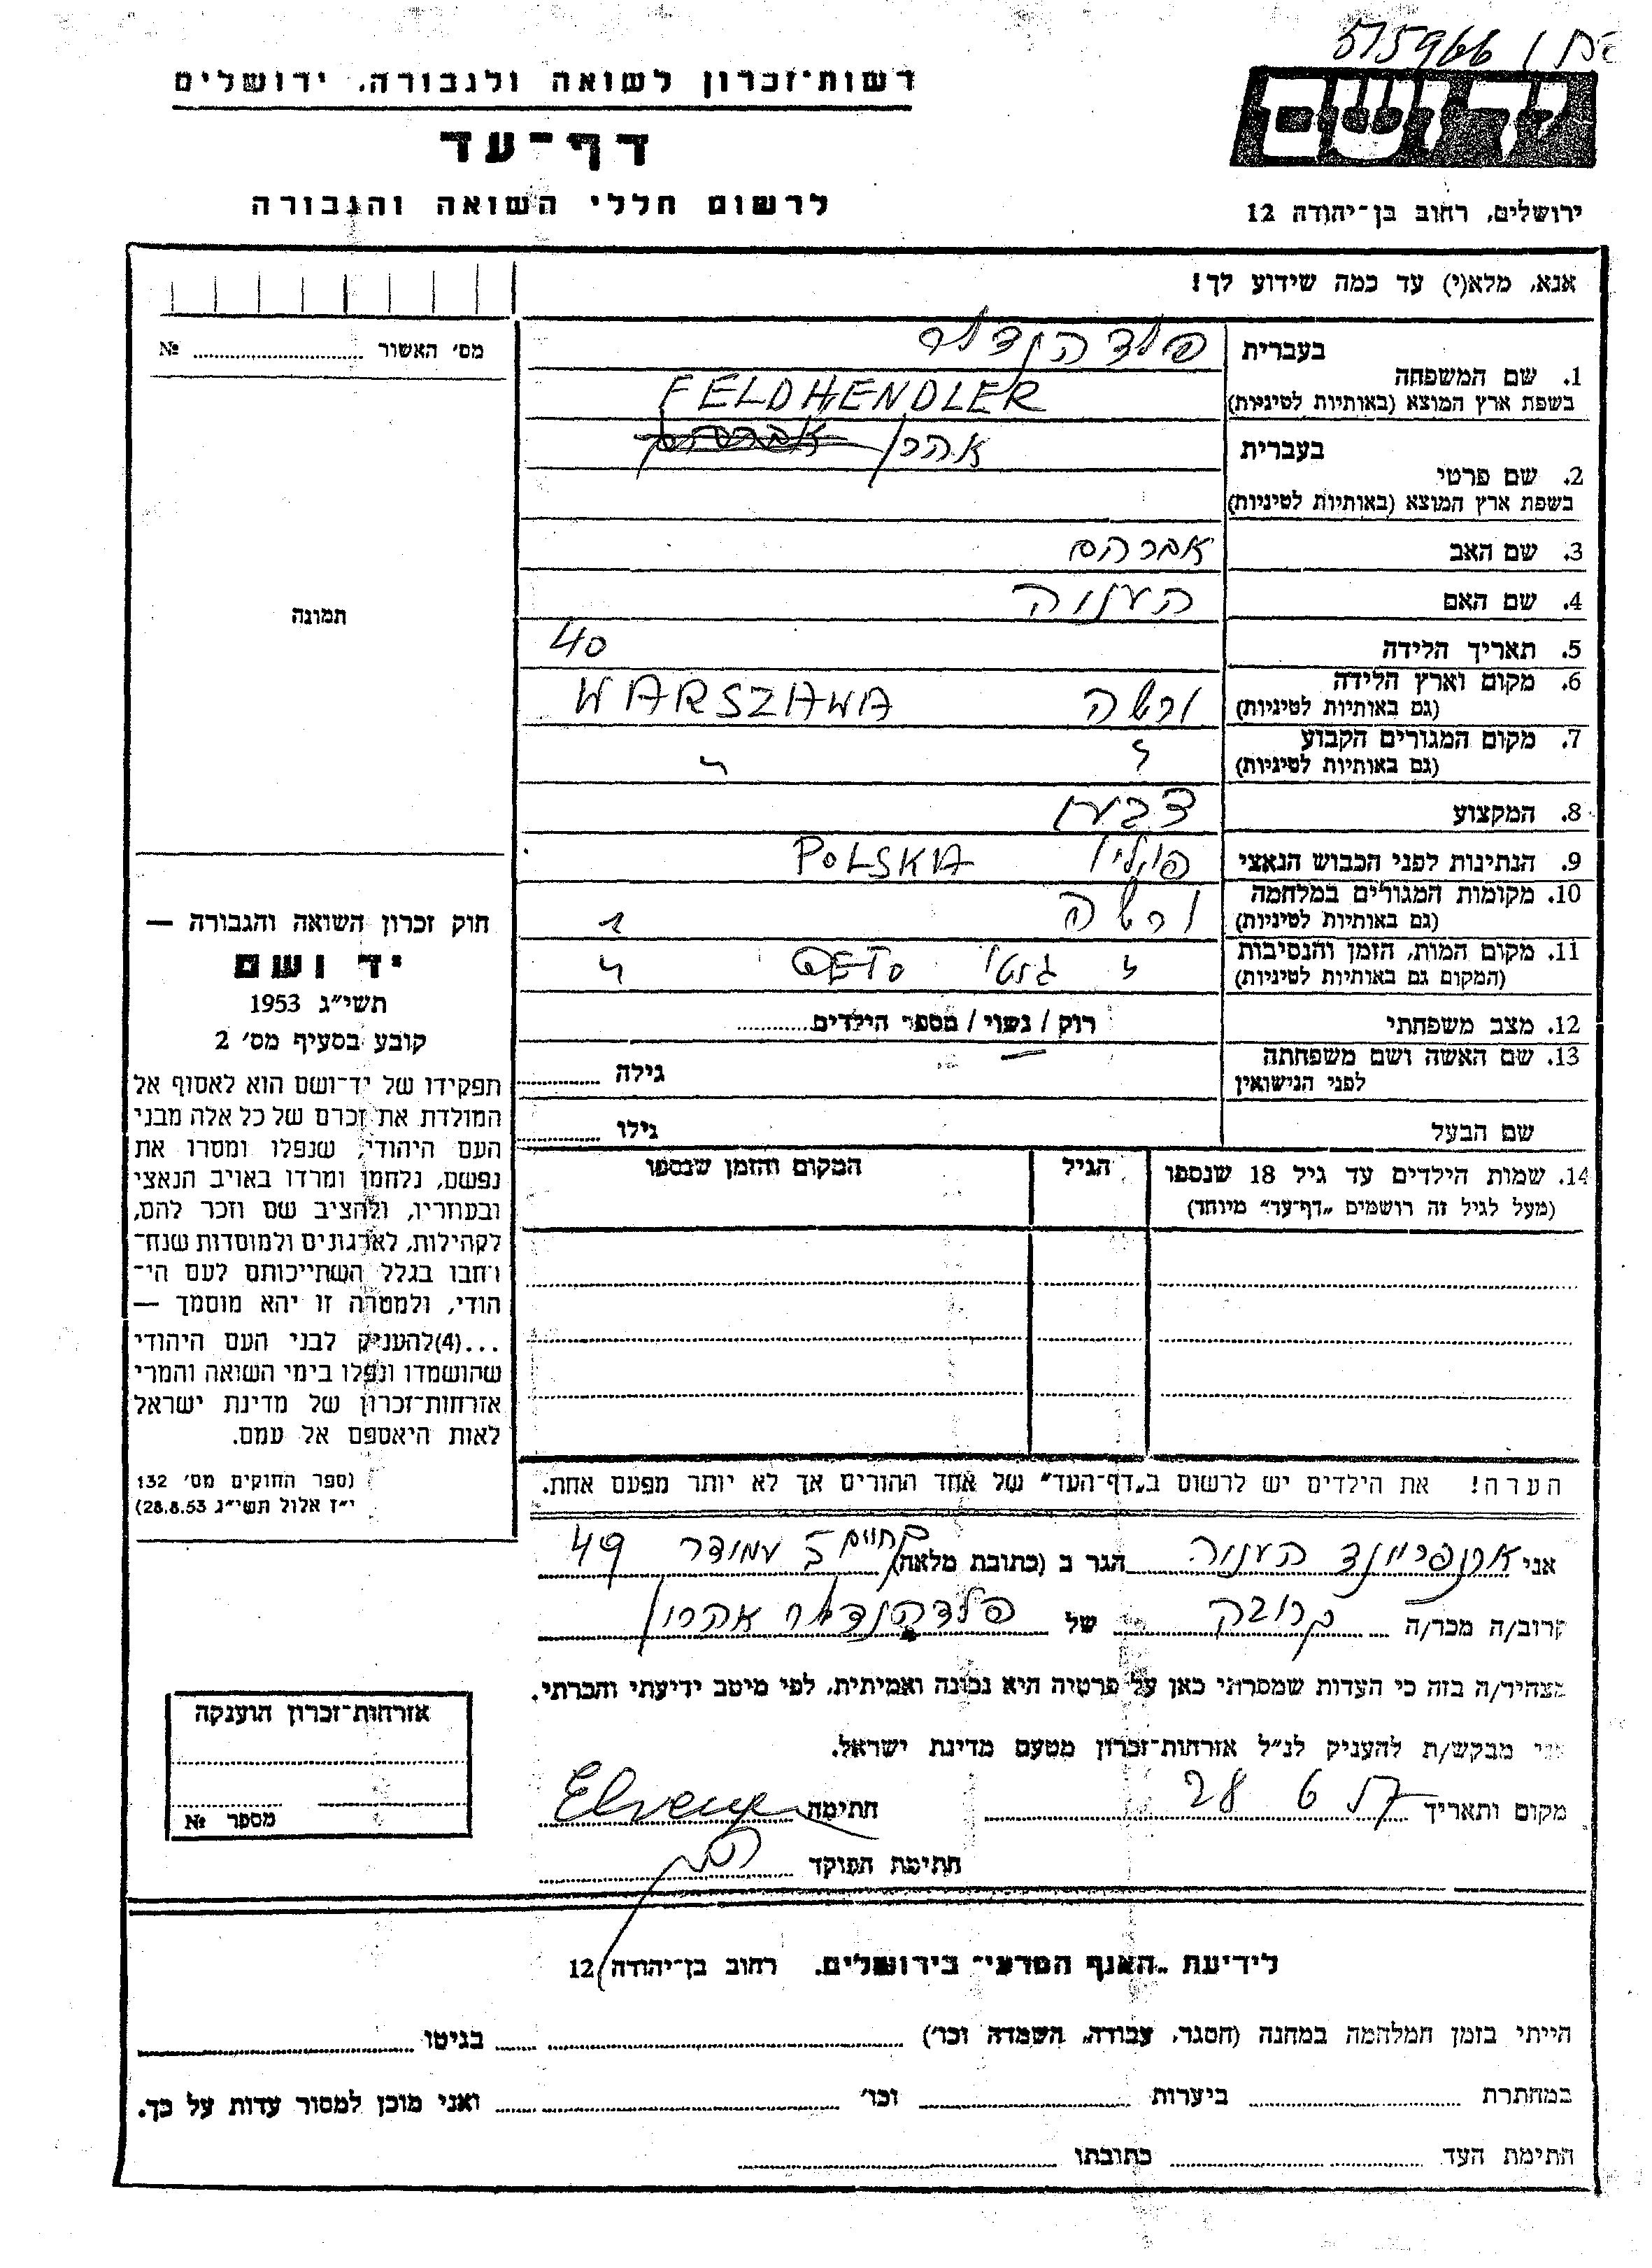 575966
רשות־זכרון לשואה ולגבורה, ירושלים
יד ושם
דף־עד
לרשום חללי השואה והגבורה
ירושלים, רחוב בן־יהודה 12
אנא, מלא(י) עד כמה שידוע לך!
מס׳ האשור № 
תמונה
1. שם המשפחה בעברית פלדהנדלר
בשפת ארץ המוצא (באותיות לטיניות) FELDHENDLER
2. שם פרטי בעברית אהרן
בשפת ארץ המוצא (באותיות לטיניות)
3. שם האב אברהם
4. שם האם
5. תאריך הלידה 40
6. מקום וארץ הלידה (גם באותיות לטיניות) ורשה WARSZAWA
7. מקום המגורים הקבוע (גם באותיות לטיניות) " "
8. המקצוע צבעי
9. הנתינות לפני הכבוש הנאצי פולין POLSKIA
10. מקומות המגורים במלחמה (גם באותיות לטיניות) ורשה "
11. מקום המות, הזמן והנסיבות (המקום גם באותיות לטיניות) " גטו GETO "
12. מצב משפחתי רוק / נשוי / מספר הילדים
13. שם האשה ושם משפחתה לפני הנישואין גילה
שם הבעל גילו
14. שמות הילדים עד גיל 18 שנספו הגיל המקום והזמן שנספו
(מעל לגיל זה רושמים „דף־עד״ מיוחד)
הערה! את הילדים יש לרשום ב„דף־העד״ של אחד ההורים אך לא יותר מפעם אחת.
חוק זכרון השואה והגבורה —
יד ושם
תשי״ג 1953
קובע בסעיף מס׳ 2
תפקידו של יד־ושם הוא לאסוף אל
המולדת את זכרם של כל אלה מבני
העם היהודי, שנפלו ומסרו את
נפשם, נלחמו ומרדו באויב הנאצי
ובעוזריו, ולהציב שם וזכר להם,
לקהילות, לארגונים ולמוסדות שנח־
רחבו בגלל השתייכותם לעם הי־
הודי, ולמטרה זו יהא מוסמך —
...(4)להעניק לבני העם היהודי
שהושמדו ונפלו בימי השואה והמרי
אזרחות־זכרון של מדינת ישראל
לאות היאספם אל עמם.
(ספר החוקים מס׳ 132
י״ז אלול תשי״ג 28.8.53)
אני הגר ב (כתובת מלאה) 49
קרוב/ה מכר/ה קרובה של פלדהנדלר אהרון
מצהיר/ה בזה כי העדות שמסרתי כאן על פרטיה היא נכונה ואמיתית, לפי מיטב ידיעתי והכרתי.
אני מבקש/ת להעניק לנ״ל אזרחות־זכרון מטעם מדינת ישראל.
מקום ותאריך 28 6 57 חתימה
חתימת הפוקד
אזרחות־זכרון הוענקה
מספר №
לידיעת „האגף המדעי״ בירושלים, רחוב בן־יהודה 12
הייתי בזמן המלחמה במחנה (הסגר, עבודה, השמדה וכו׳) בגיטו
במחתרת ביערות וכו׳ ואני מוכן למסור עדות על כך.
חתימת העד כתובתו